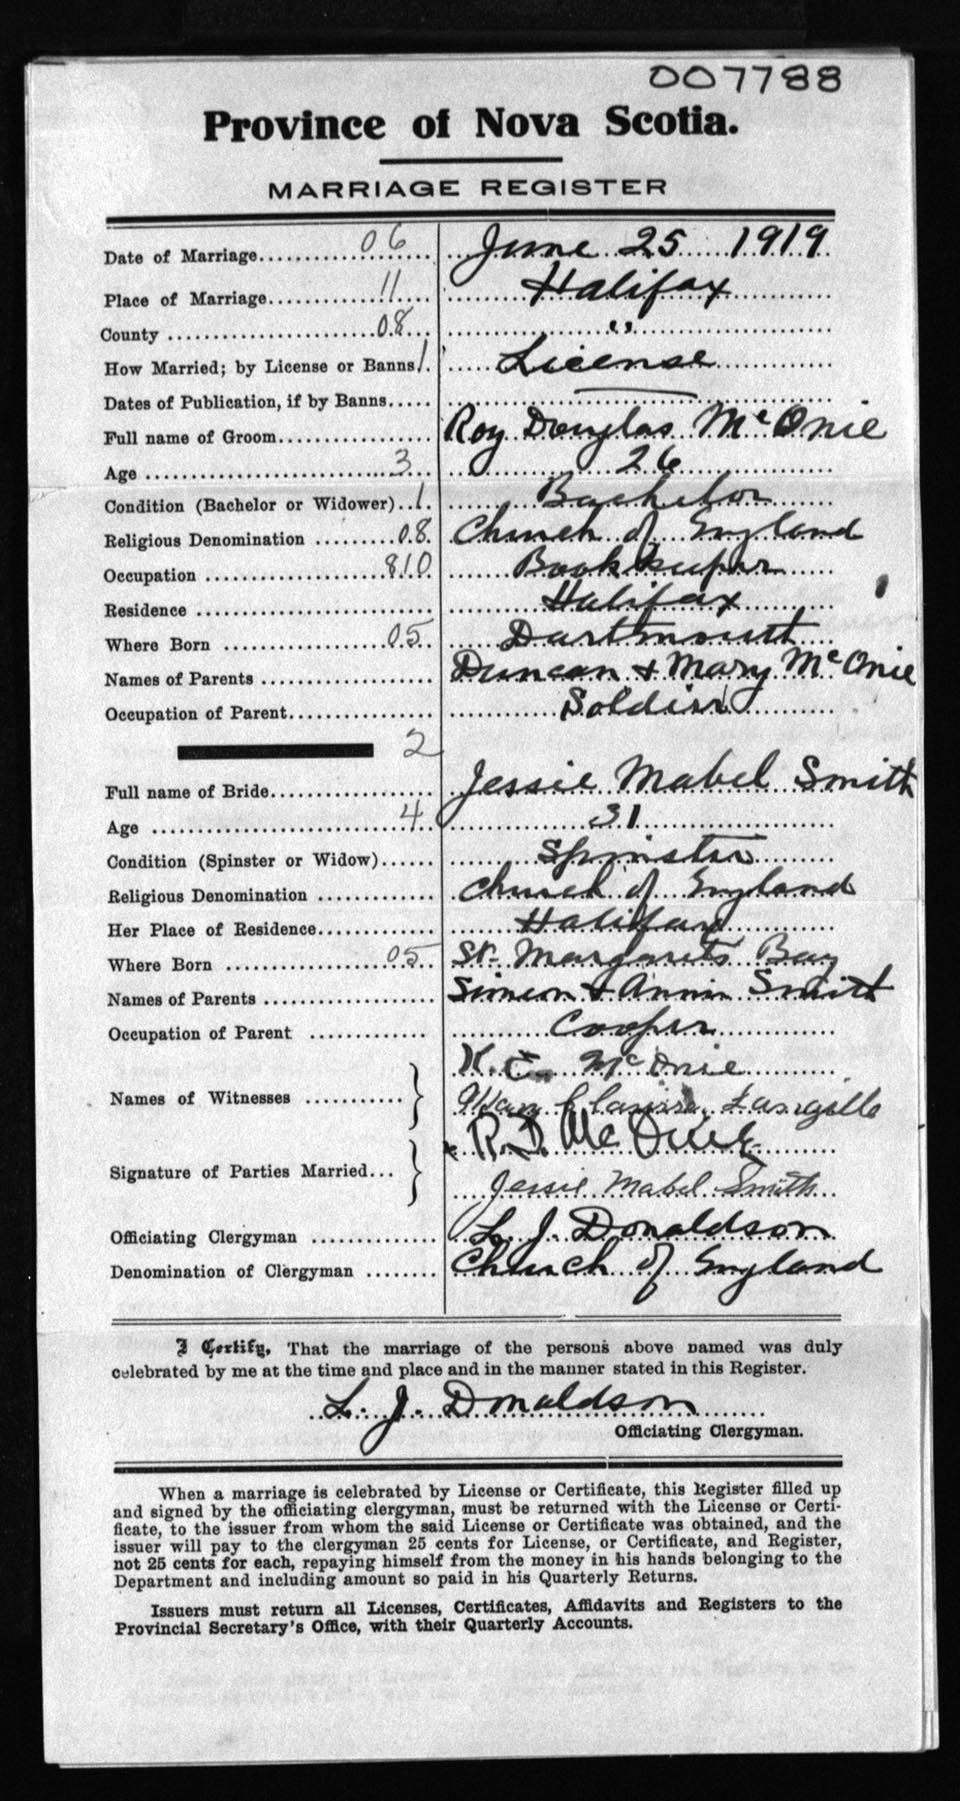 007788
Province of Nova Scotia.
MARRIAGE REGISTER
Date of Marriage 06 June 25 1919
Place of Marriage 11 Halifax
County 08 "
How Married; by License or Banns 1 License
Dates of Publication, if by Banns —
Full name of Groom Roy Douglas McOnie
Age 3 26
Condition (Bachelor or Widower) 1 Bachelor
Religious Denomination 08 Church of England
Occupation 810 Bookkeeper
Residence Halifax
Where Born 05 Dartmouth
Names of Parents Duncan & Mary McOnie
Occupation of Parent Soldier
2
Full name of Bride Jessie Mabel Smith
Age 4 31
Condition (Spinster or Widow) Spinster
Religious Denomination Church of England
Her Place of Residence Halifax
Where Born 05 St. Margarets Bay
Names of Parents Simeon & Annie Smith
Occupation of Parent Cooper
Names of Witnesses K. E. McOnie
Langille
Signature of Parties Married R.D. McOnie
Jessie Mabel Smith
Officiating Clergyman L. J. Donaldson
Denomination of Clergyman Church of England
I Certify, That the marriage of the persons above named was duly
celebrated by me at the time and place and in the manner stated in this Register.
L. J. Donaldson
Officiating Clergyman.
When a marriage is celebrated by License or Certificate, this Register filled up
and signed by the officiating clergyman, must be returned with the License or Certi-
ficate, to the issuer from whom the said License or Certificate was obtained, and the
issuer will pay to the clergyman 25 cents for License, or Certificate, and Register,
not 25 cents for each, repaying himself from the money in his hands belonging to the
Department and including amount so paid in his Quarterly Returns.
Issuers must return all Licenses, Certificates, Affidavits and Registers to the
Provincial Secretary's Office, with their Quarterly Accounts.